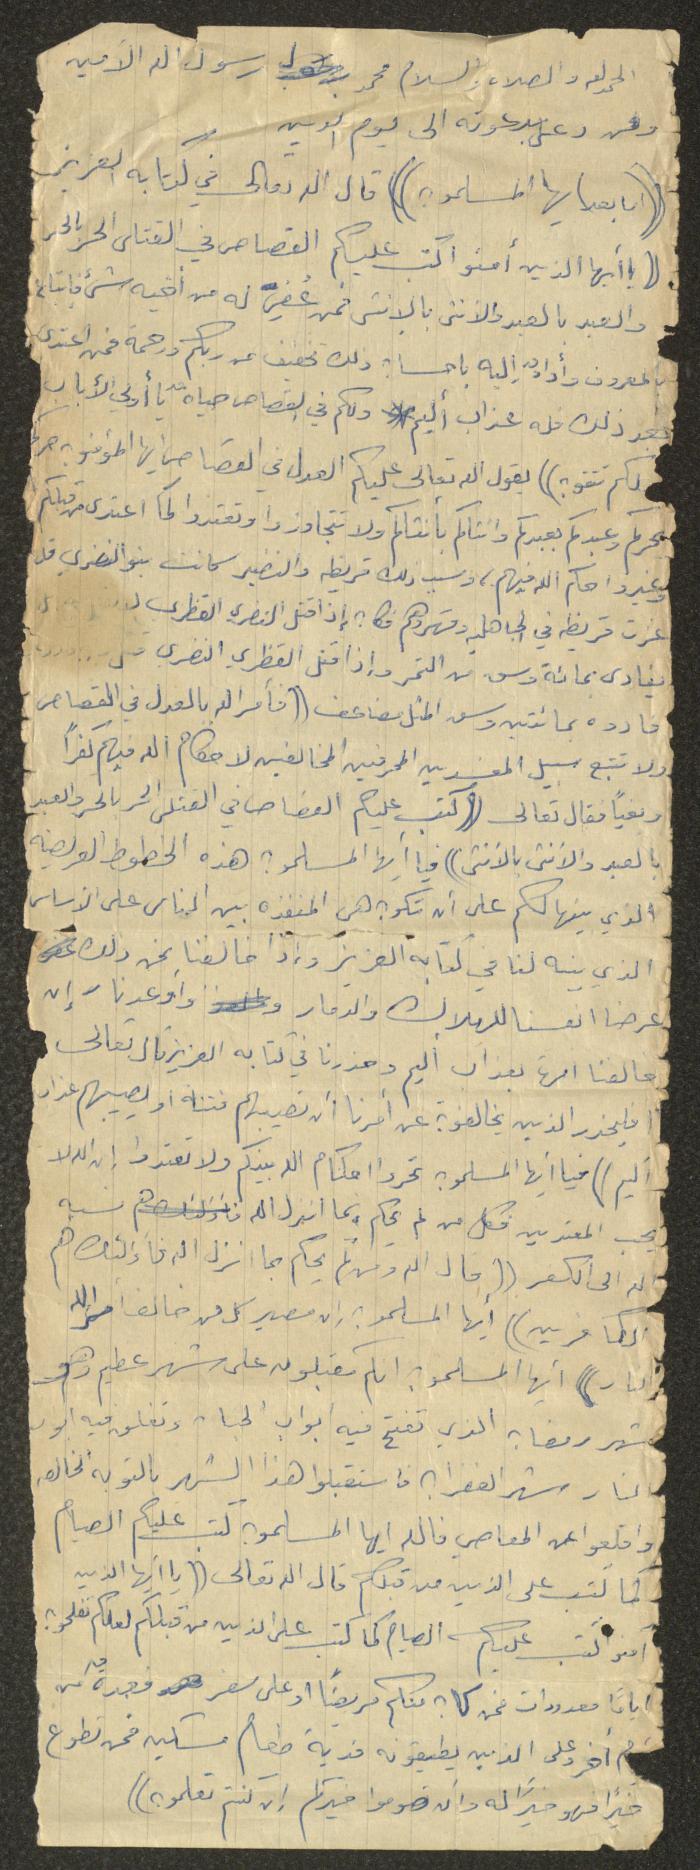 الحمد لله والصلاه والسلام محمد رسول الله الأمين
ومن دعى بدعوته الى يوم الدين
((اما بعد ايها المسلمون)) قال الله تعالى في كتابه العزيز
((يا أيها الذين أمنوا كتب عليكم القصاص في القتلى الحر بالحر
والعبد بالعبد والأنثى بالانثى فمن عُفيَ له من أخيه شئ فإتباع
بالمعروف وأداء إليه باحسان ذلك تخفيف من ربكم ورحمة فمن اعتدى
بعد ذلك فله عذاب أليم ولكم في القصاص حياه يا أولي الألباب
لعلكم تتقون)) يقول الله تعالى عليكم العدل في القصاص ايها المؤمنون حركم
بحركم وعبدكم بعبدكم وانثاكم بأنثاكم ولا تتجاوزوا وتعتدوا كما اعتدى من قبلكم
وغيروا حكم الله فيهم، وسبب ذلك قريظه والنضير كانت بنو النضري قد
غزت قريظه في الجاهليه وقهروهم فكان إذا قتل النضري القظري
يفادى بمائة وسق من التمر وإذا قتل القظري النضري
فادوه بمائتين وسق المثل مضاعف ((فأمر الله بالعدل في القصاص
ولا تتبع سبيل المفسدين المحرفين المخالفين لاحكام الله فيهم كفراً
وبغياً فقال تعالى ((كتب عليكم القصاص في القتلى الحر بالحر والعبد
بالعبد والأنثى بالأنثى)) فيا أيها المسلمون هذه الخطوط العريضه
الذي بينها لكم على أن تكون هي المنفذه بين الناس على الأساس
الذي بينه لنا في كتابه العزيز وإذا خالفنا نحن ذلك
عرضنا انفسنا للهلاك والدمار وأوعدنا إن
خالفنا امره بعذاب أليم وحذرنا في كتابه العزيز قال تعالى
((فليحذر الذين يخالفون عن أمرنا أن تصيبهم فتنة أو يصيبهم عذاب
أليم)) فيا أيها المسلمون تحروا احكام الله بينكم ولا تعتدوا إن الله لا
يحب المعتدين فكل من لم يحكم بما انزل الله نسبه
الله الى الكفر ((قال الله ومن لم يحكم بما انزل الله فأولئك هم
الكافرين)) أيها المسلمون إن مصير كل من خالف أمر الله
النار)) أيها المسلمون انكم مقبلون على شهر عظيم وهو
شهر رمضان الذي تفتح فيه أبواب الجنان وتغلق فيه ابواب
النار شهر الغفران فاستقبلوا هذا الشهر بالتوبه الخالصه
واقلعوا عن المعاصي فالله ايها المسلمون كتب عليكم الصيام
كما كتب على الذين من قبلكم قال الله تعالى ((يا أيها الذين
آمنو كتب عليكم الصيام كما كتب على الذين من قبلكم لعلكم تفلحون
اياما معدودات فمن كان منكم مريضاً او على سفر فعدة من
أيام أخر وعلى الذين يطيقونه فدية طعام مسكين فمن تطوع
خيراً فهو خيراً له وأن تصوموا خيرلكم إن كنتم تعلمون))